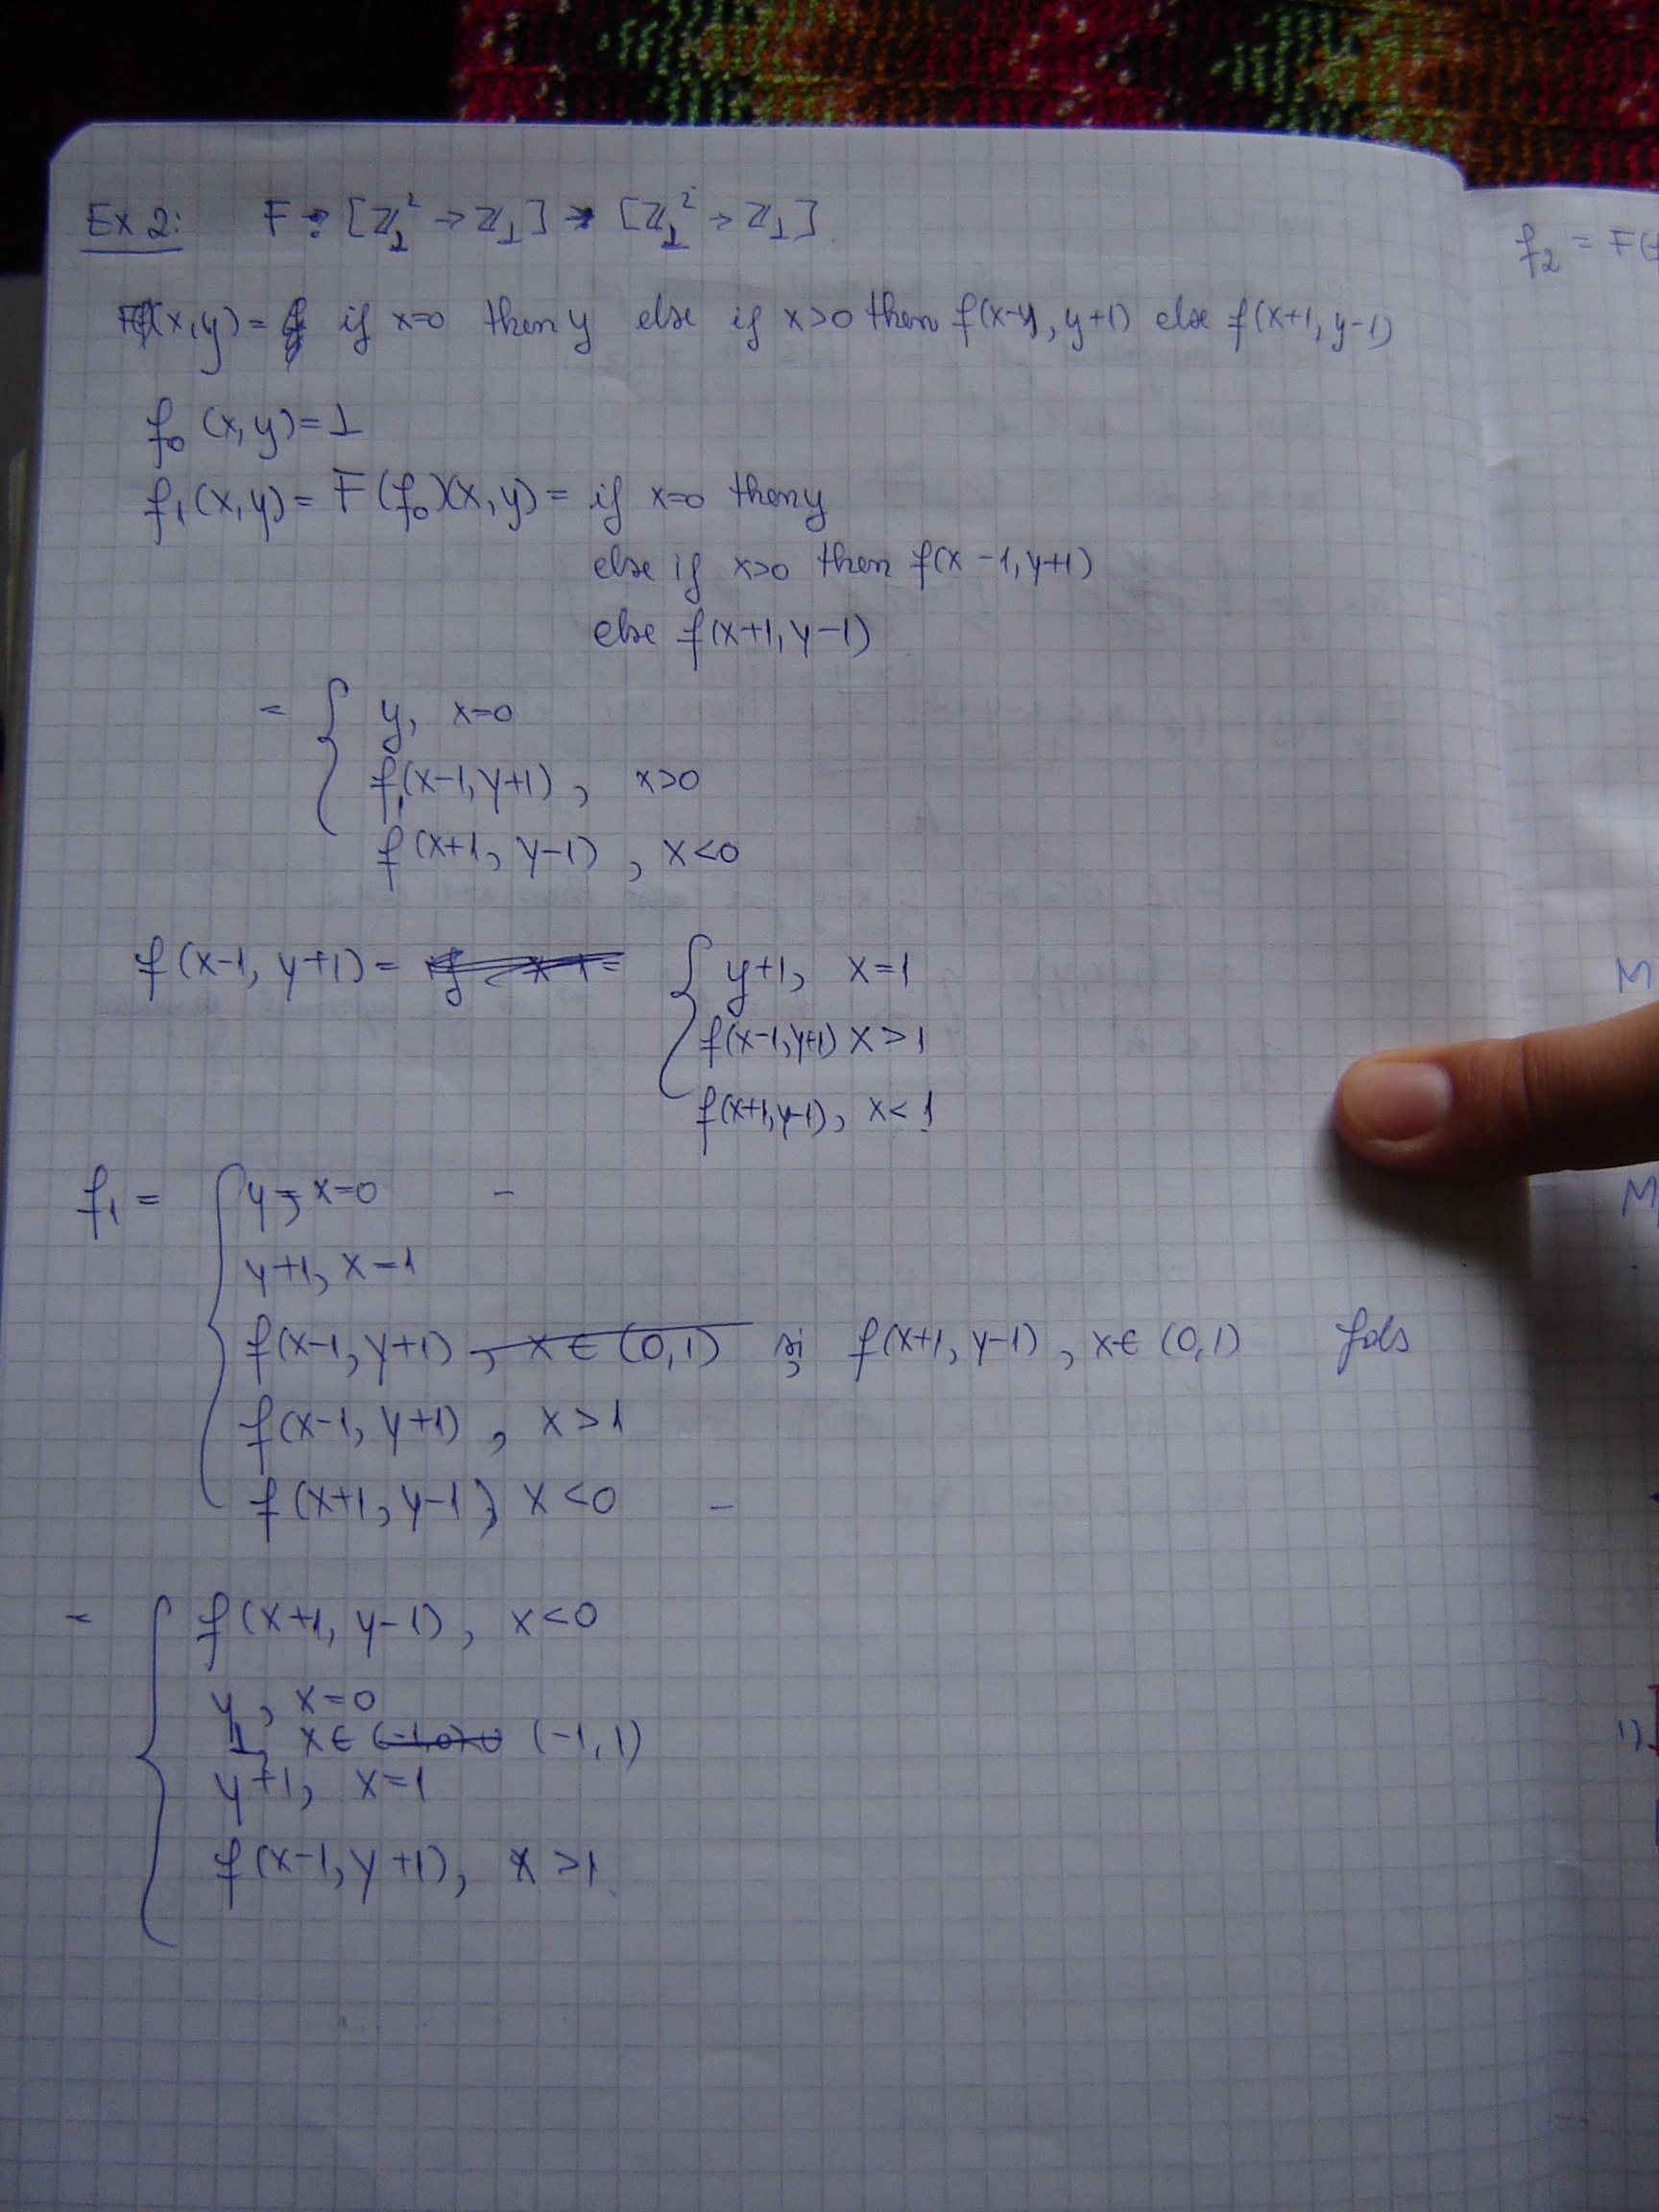 Ex 2: F : [ℤ⊥² → ℤ⊥] → [ℤ⊥² → ℤ⊥]
F(f)(x,y) = if x=0 then y else if x>0 then f(x-1, y+1) else f(x+1, y-1)
f₀(x,y) = ⊥
f₁(x,y) = F(f₀)(x,y) = if x=0 then y
else if x>0 then f(x-1, y+1)
else f(x+1, y-1)
= { y, x=0
f(x-1, y+1), x>0
f(x+1, y-1), x<0
f(x-1, y+1) = { y+1, x=1
f(x-1, y+1) x>1
f(x+1, y-1), x<1
f₁ = { y, x=0 –
y+1, x=1
f(x-1, y+1), x∈(0,1) și f(x+1, y-1), x∈(0,1) fals
f(x-1, y+1), x>1
f(x+1, y-1), x<0 –
= { f(x+1, y-1), x<0
y, x=0
⊥, x∈ (-1,1)
y+1, x=1
f(x-1, y+1), x>1
f₂ = F(f
M
M
1)